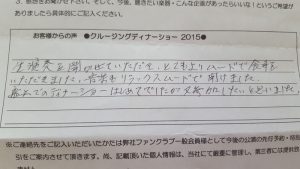 3. 感想をお聞かせください。そして、今後、聴きたい楽器・こんな企画があったらいいな！というご希望が
ありましたら具体的にご記入ください。
お客様からの声 ●クルージングディナーショー 2015●
生演奏を聞かせていただいて、とてもよいムードで食事を
いただきました。音楽もリラックスムードで聞けました。
船上でのディナーショーはじめてでしたが又参加したいと思いました。
※ご連絡先をご記入いただいたかたは弊社ファンクラブ一般会員様として今後の公演の先行予約・時
引をご案内させて頂きます。尚、記載頂いた個人情報は、当社にて厳重に管理し、第三者には提供